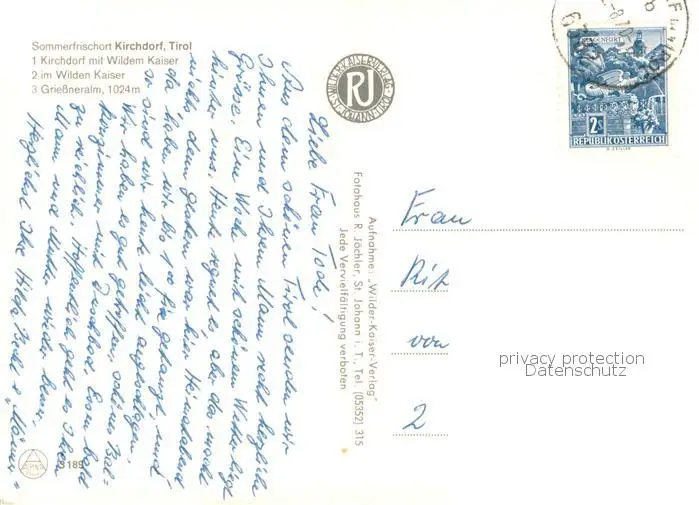 Sommerfrischort Kirchdorf, Tirol
1 Kirchdorf mit Wildem Kaiser
2 im Wilden Kaiser
3 Grießneralm, 1024m
WILDER-KAISER-VERLAG
ST. JOHANN-TIROL
RJ
KLAGENFURT
2S
REPUBLIK ÖSTERREICH
Liebe Frau Tode!
Aus dem schönen Tirol senden wir
Ihnen und Ihrem Mann recht herzliche
Grüsse. Eine Woche mit schönem Wetter liegt
hinter uns. Heute regnet es, aber das macht
nichts, denn gestern war ein Heimatabend
da haben wir bis 1 00 für getanzt, und
so sind wir heute nicht ausgeschlagen.
Wir haben es gut getroffen, schönes
mit Essen
zu reichlich. Hoffentlich geht es Ihrem
Mann und Mutter wieder besser.
Herzlichst Ihre Hilde
Aufnahme: „Wilder-Kaiser-Verlag"
Fotohaus R. Jöchler, St. Johann i. T., Tel. (05352) 315
Jede Vervielfältigung verboten
Frau
von
2
privacy protection
Datenschutz
3189